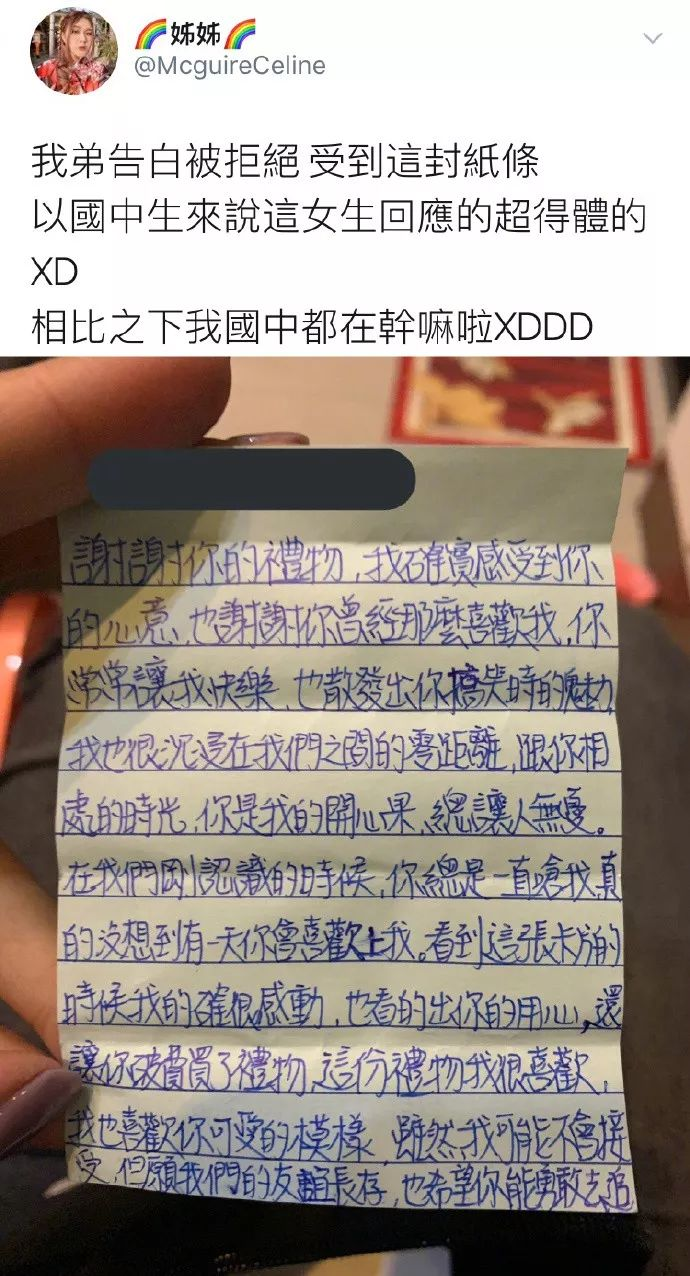 🌈姊姊🌈
@McguireCeline
我弟告白被拒絕 受到這封紙條
以國中生來說這女生回應的超得體的
XD
相比之下我國中都在幹嘛啦XDDD
謝謝你的禮物,我確實感受到你
的心意,也謝謝你曾經那麼喜歡我,你
常常讓我快樂,也散發出你搞笑時的魅力,
我也很沉浸在我們之間的零距離,跟你相
處的時光,你是我的開心果,總讓人無憂。
在我們剛認識的時候,你總是一直嗆我真
的沒想到有一天你會喜歡上我。看到這張卡片的
時候我的確很感動,也看的出你的用心,還
讓你破費買了禮物,這份禮物我很喜歡,
我也喜歡你可愛的模樣,雖然我可能不會接
受,但願我們的友誼長存,也希望你能勇敢去追